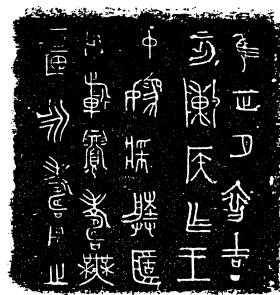 隹正月初吉
丁亥敶侯乍王
中媯媵
用旂眉壽無
彊永壽用之